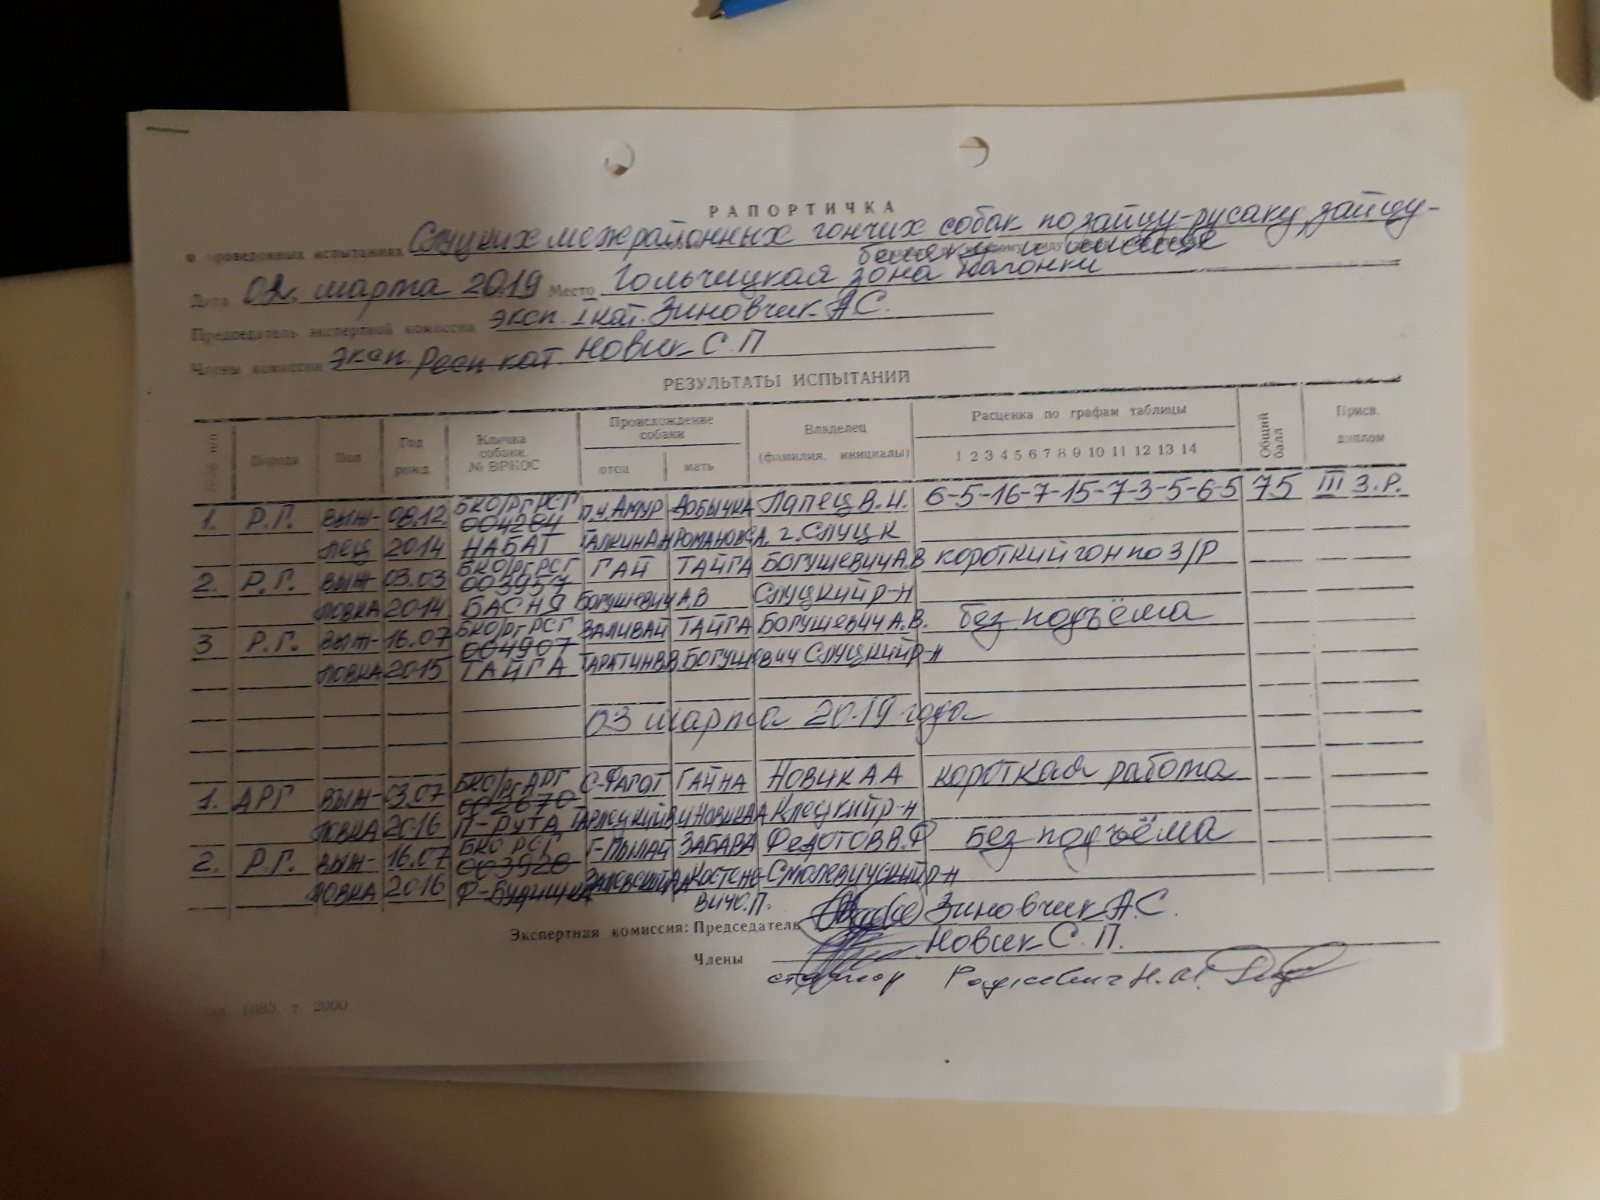 РАПОРТИЧКА
о проведенных испытаниях Слуцких межрайонных гончих собак по зайцу-русаку, зайцу-
беляку и лисице
Дата 02. марта 2019 Место Гольчицкая зона нагонки
Председатель экспертной комиссии эксп. I кат. Зиновчик А С.
Члены комиссии Эксп. Респ кат. Новик С. П
РЕЗУЛЬТАТЫ ИСПЫТАНИЙ
Порода Пол Год рожд Кличка собаки, № ВРКОС Происхождение собаки отец мать Владелец (фамилия, инициалы) Расценка по графам таблицы 1 2 3 4 5 6 7 8 9 10 11 12 13 14 Общий балл Присв. диплом
1. Р.Г. выж- 08.12 БКО/рг РСГ 004284 П.Ч. Амур Добычка Папец В.И. 6-5-16-7-15-7-3-5-6-5 75 III З.Р.
лец 2014 НАБАТ г. Слуцк
2. Р.Г. выж- 03.03 БКО/рг РСГ 003957 ГАЙ ТАЙГА БОГУШЕВИЧ А.В короткий гон по З/Р
ловка 2014 БАСНЯ Богушевич А.В Слуцкий р-н
3 Р.Г. выж- 16.07 БКО/рг РСГ 004907 ЗАЛИВАЙ ТАЙГА БОГУШЕВИЧ А.В. без подъёма
ловка 2015 ТАЙГА БОГУШЕВИЧ Слуцкий р-н
03 марта 2019 года
1. АРГ выж- 03.07 БКО/рг АРГ С-Фагот ГАЙНА НОВИК А А короткая работа
ловка 2016 П-Рута НОВИК А А Клецкий р-н
2. Р.Г. выж- 16.07 БКО РСГ 003920 Г-Пылай ЗАБАВА ФЕДОТОВ В.Ф Без подъёма
ловка 2016 Костеневич О.П. Смолевичский р-н
Экспертная комиссия: Председатель Зиновчик А.С.
Члены Новик С. П.
стажор Радкевич Н.И.